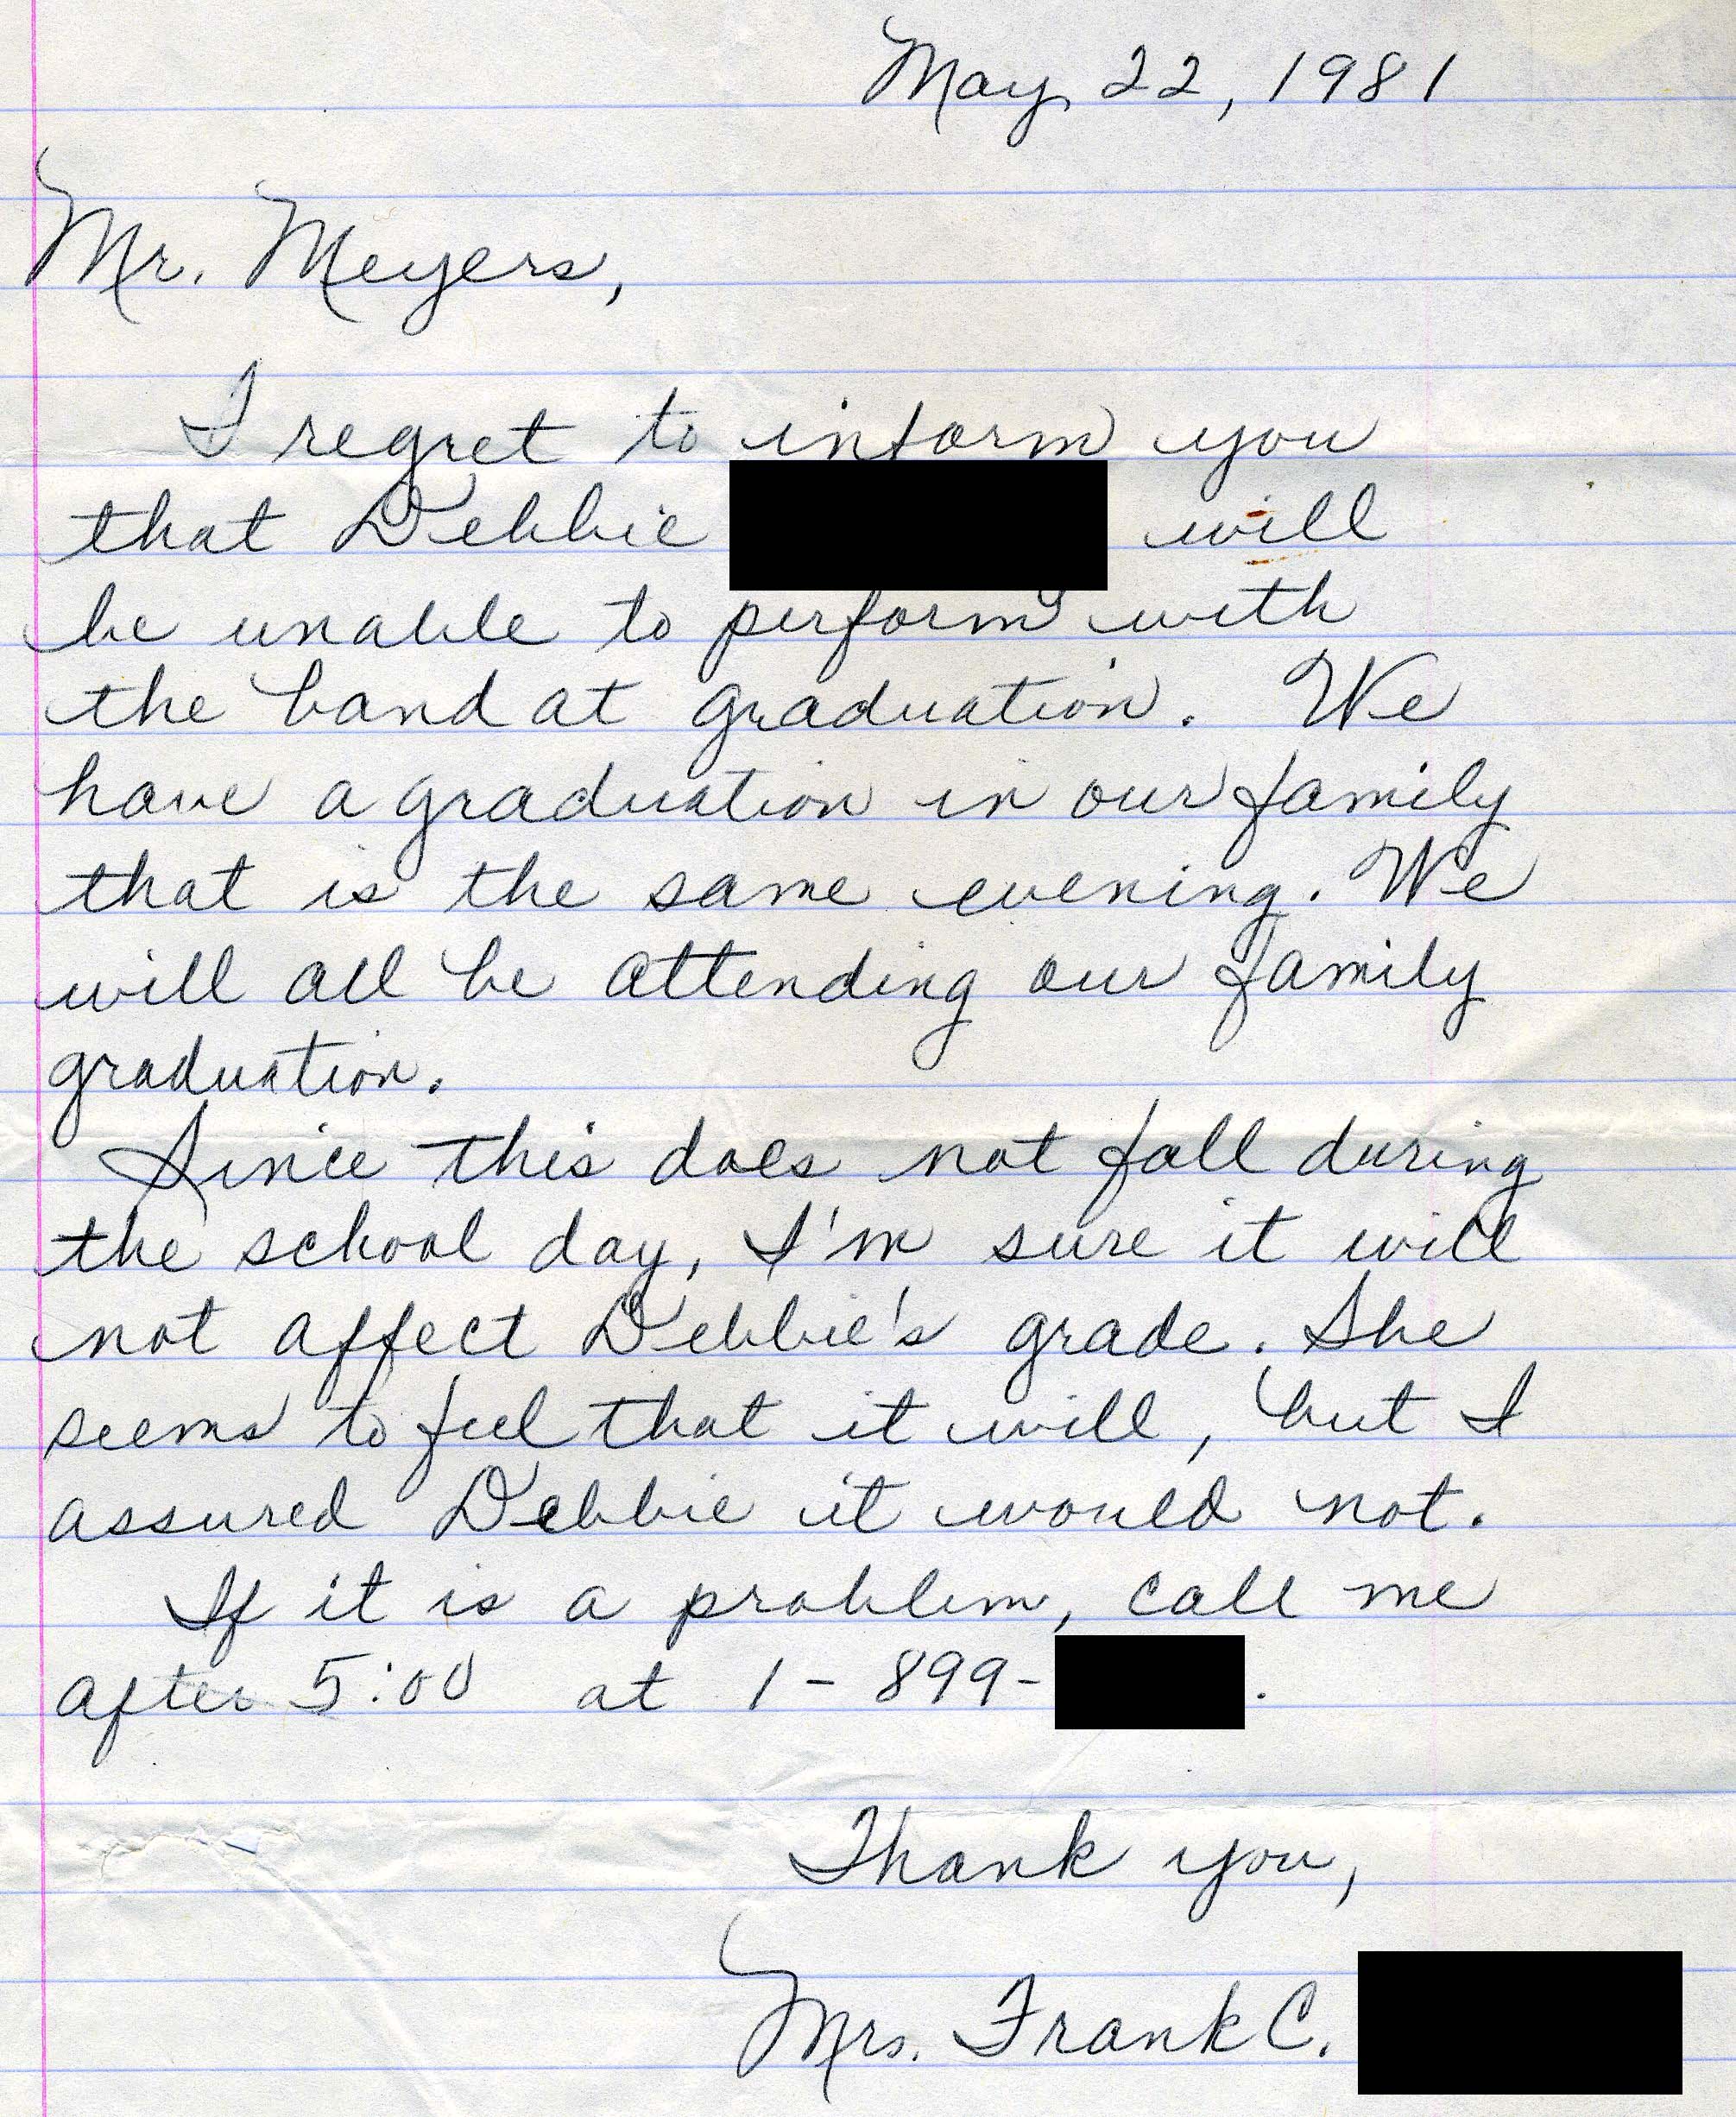 May 22, 1981
Mr. Meyers,
I regret to inform you
that Debbie will
be unable to perform with
the band at graduation. We
have a graduation in our family
that is the same evening. We
will all be attending our family
graduation.
Since this does not fall during
the school day, I'm sure it will
not affect Debbie's grade. She
seems to feel that it will, but I
assured Debbie it would not.
If it is a problem, call me
after 5:00 at 1-899- .
Thank you,
Mrs. Frank C.